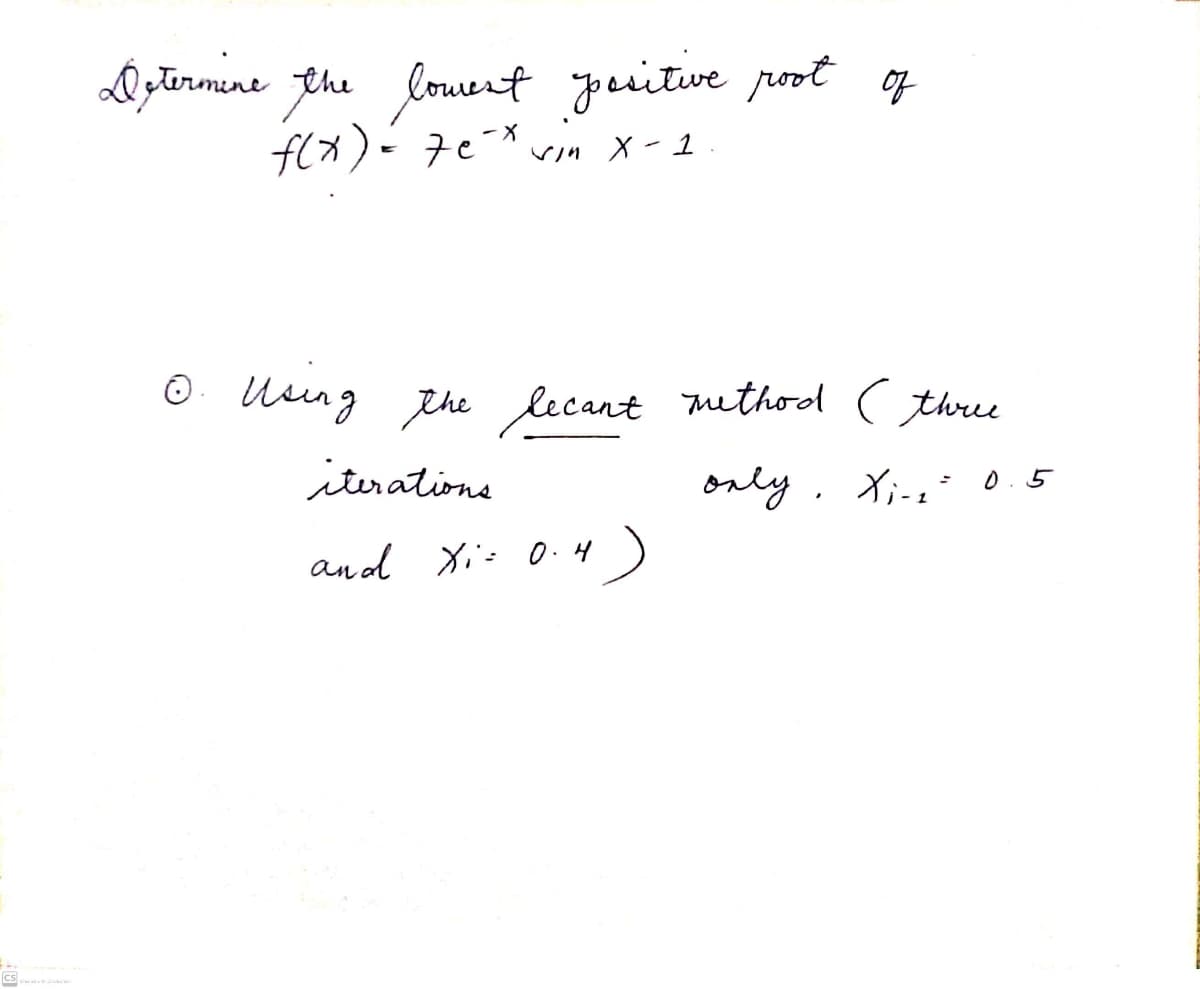 Determine the lowest positive root of
f(x) = 7e^-x sin x - 1.
⊙. Using the secant method ( three
iterations only. Xi-1 = 0.5
and Xi = 0.4 )
CS